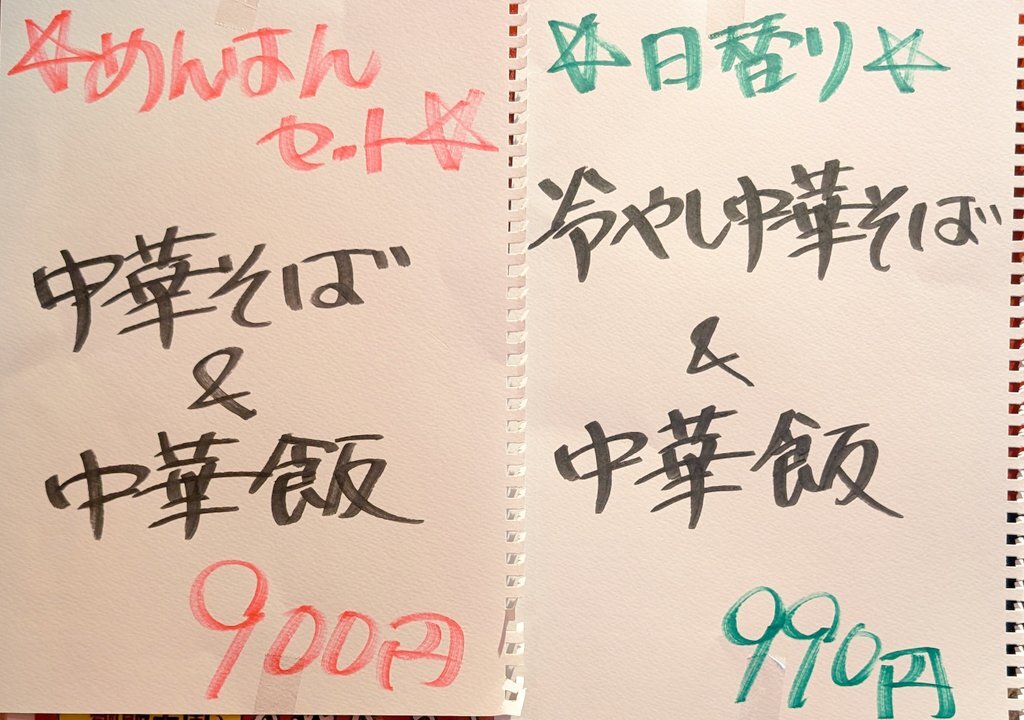 ☆めんはん
セット☆
中華そば
&
中華飯
900円
☆日替り☆
冷やし中華そば
&
中華飯
990円